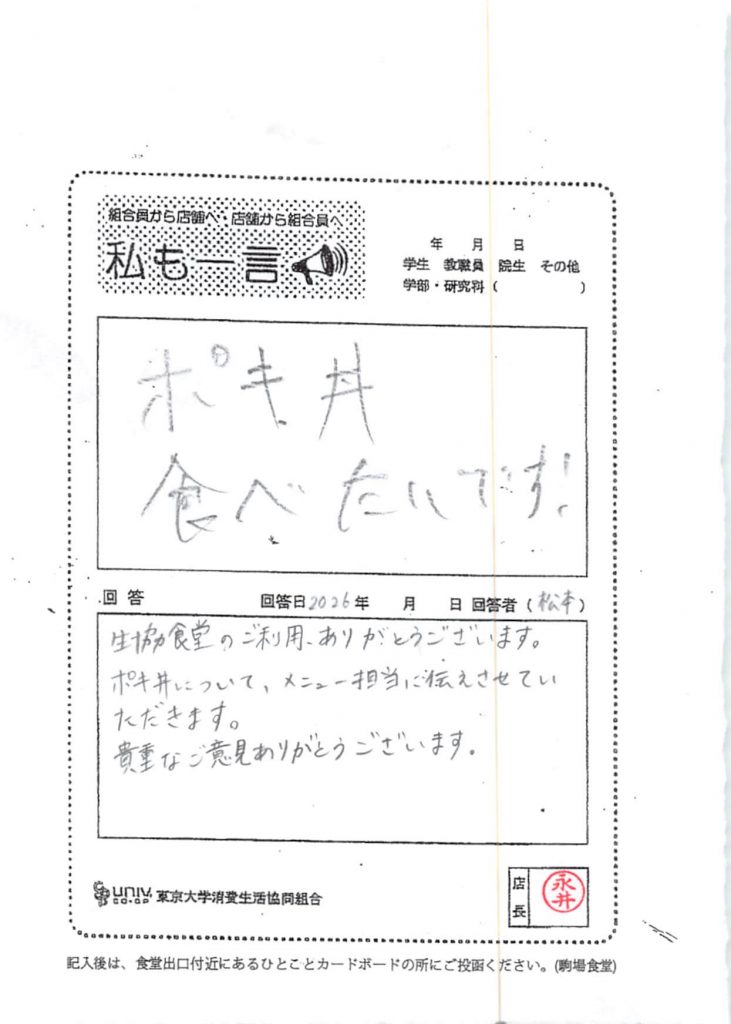 組合員から店舗へ・店舗から組合員へ
私も一言
年 月 日
学生 教職員 院生 その他
学部・研究科 ( )
ポキ丼
食べたいです!
回答 回答日2026年 月 日 回答者 (松本)
生協食堂のご利用、ありがとうございます。
ポキ丼について、メニュー担当に伝えさせてい
ただきます。
貴重なご意見ありがとうございます。
UNIV. CO-OP 東京大学消費生活協同組合
店長
永井
記入後は、食堂出口付近にあるひとことカードボードの所にご投函ください。(駒場食堂)